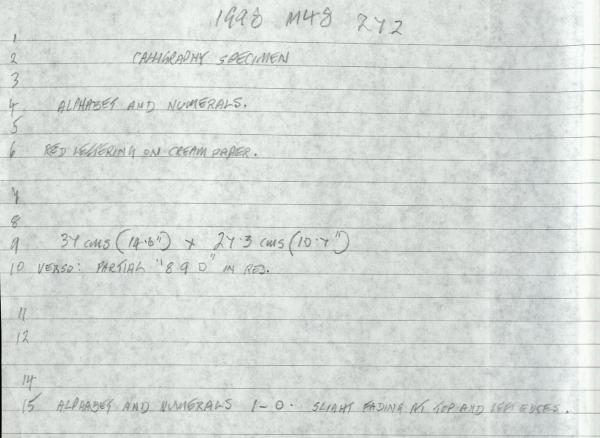 1998 M48 272
1
2 CALLIGRAPHY SPECIMEN
3
4 ALPHABET AND NUMERALS.
5
6 RED LETTERING ON CREAM PAPER.
7
8
9 37 cms (14.6") x 27.3 cms (10.7")
10 VERSO: PARTIAL "8 9 0" IN RED.
11
12
14
15 ALPHABET AND NUMERALS 1-0. SLIGHT FADING AT TOP AND LEFT EDGES.